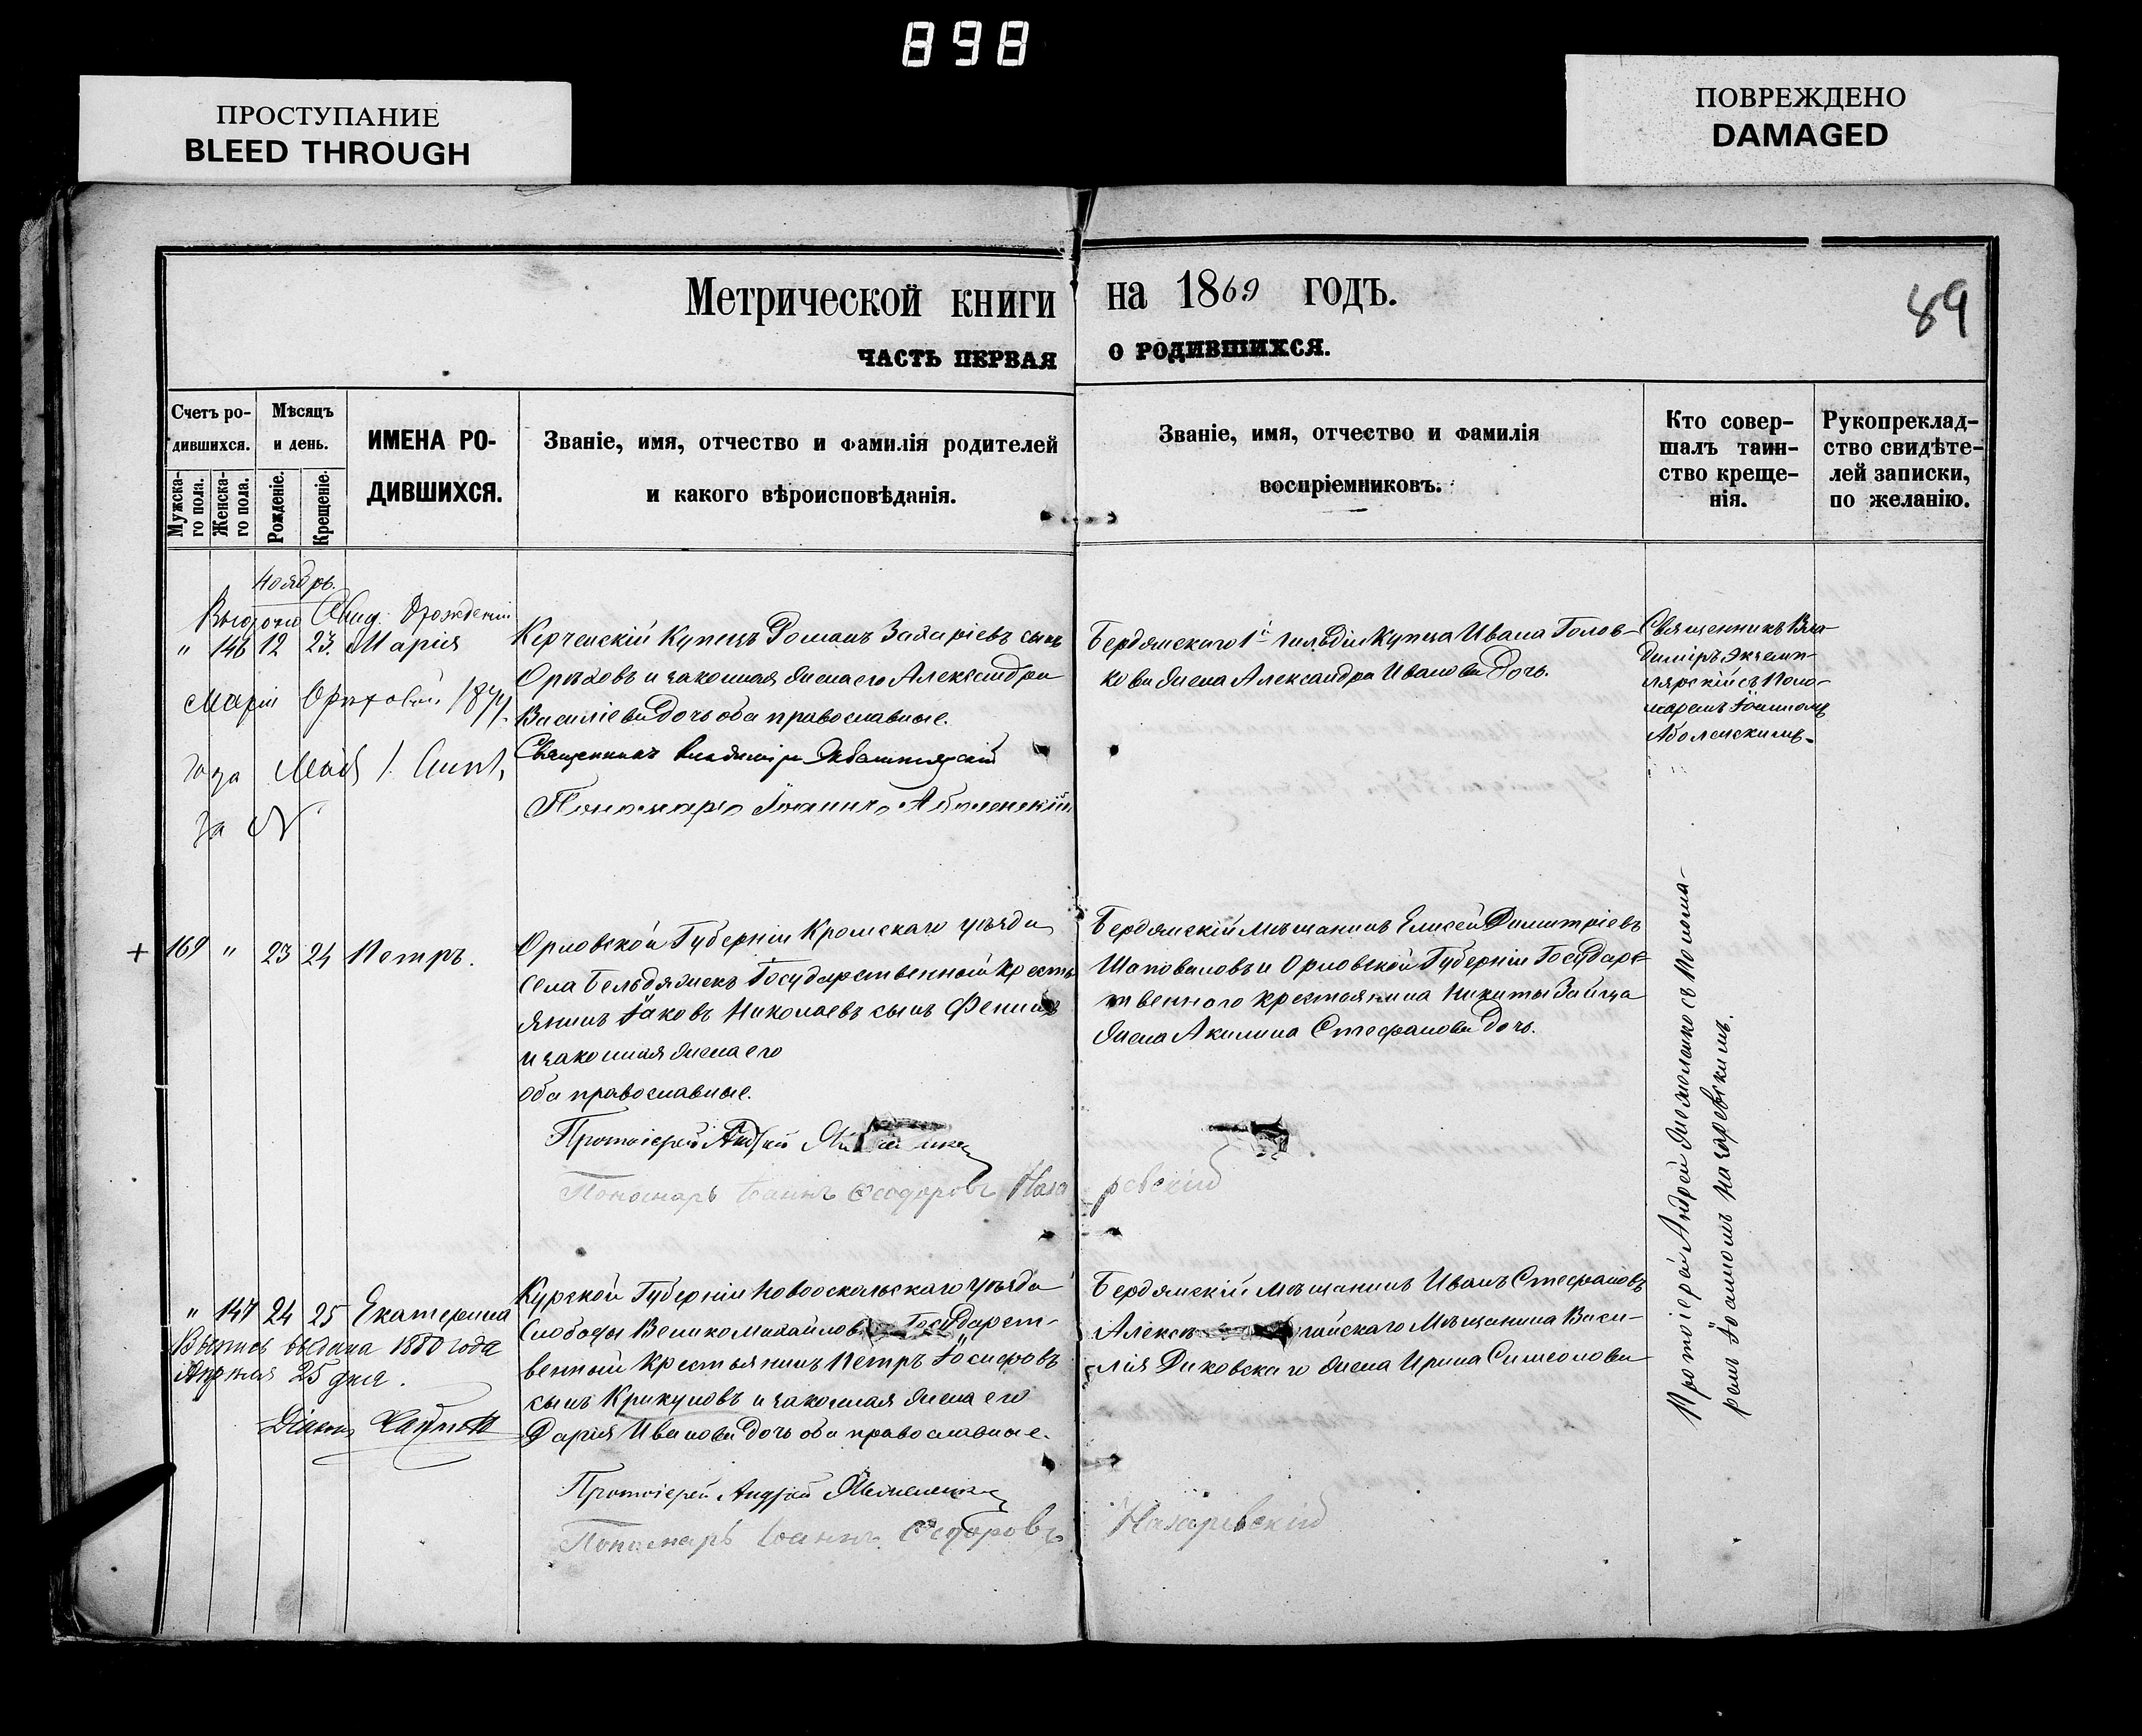 898
ПРОСТУПАНИЕ
BLEED THROUGH
ПОВРЕЖДЕНО
DAMAGED
Метрической книги на 1869 годъ.
89
ЧАСТЬ ПЕРВАЯ О РОДИВШИХСЯ.
Счетъ ро-
дившихся.
Мужска-
го пола.
Женска-
го пола.
Мѣсяцъ
и день.
Рожденіе.
Крещеніе.
ИМЕНА РО-
ДИВШИХСЯ.
Званіе, имя, отчество и фамилія родителей
и какого вѣроисповѣданія.
Званіе, имя, отчество и фамилія
воспріемниковъ.
Кто совер-
шалъ таин-
ство креще-
нія.
Рукоприклад-
ство свидѣте-
лей записки,
по желанію.
Ноябрь.
Свид. о рожденіи
" 146 12 23. Марія
Маріи Орѣховой 187
года Мая
за N
Керченскій Купецъ Романъ Захаріевъ сынъ
Орѣховъ и законная жена его Александра
Василіева дочь оба православные.
Священникъ Владиміръ
Пономарь Іоаннъ Аболенскій
Бердянскаго 1й гильдіи Купца Ивана Голов-
кова жена Александра Иванова дочь.
Священникъ Вла-
диміръ Экземп-
лярскій съ Поно-
маремъ Іоанномъ
Аболенскимъ.
+ 169 " 23 24 Петръ.
Орловской Губерніи Кромскаго уѣзда
села Бельдяжекъ Государственный кресть-
янинъ Іаковъ Николаевъ сынъ
и законная жена его
оба православные.
Протоіерей Андрей
Пономарь Іоаннъ Ѳеодоровъ Назаревскій
Бердянскій мѣщанинъ Елисей Димитріевъ
Шаповаловъ и Орловской Губерніи Государс-
твенного крестьянина Никиты Зайца
жена Акилина Стефанова дочь.
Протоіерей Андрей съ Понома-
ремъ Іоанномъ Назаревскимъ.
" 147 24 25 Екатерина
Выпись выдана 1880 года
Апрѣля 25 дня.
Курской Губерніи Новооскольскаго уѣзда
Слободы Великомихайлов Государст-
венный крестьянинъ Петръ Іосифовъ
сынъ Крикуновъ и законная жена его
Дарія Иванова дочь оба православные.
Протоіерей Андрей
Пономарь Іоаннъ Ѳеодоровъ Назаревскій
Бердянскій мѣщанинъ Иванъ Стефановъ
Алекс гайскаго мѣщанина Васи-
лія Диковскаго жена Ирина Симеонова